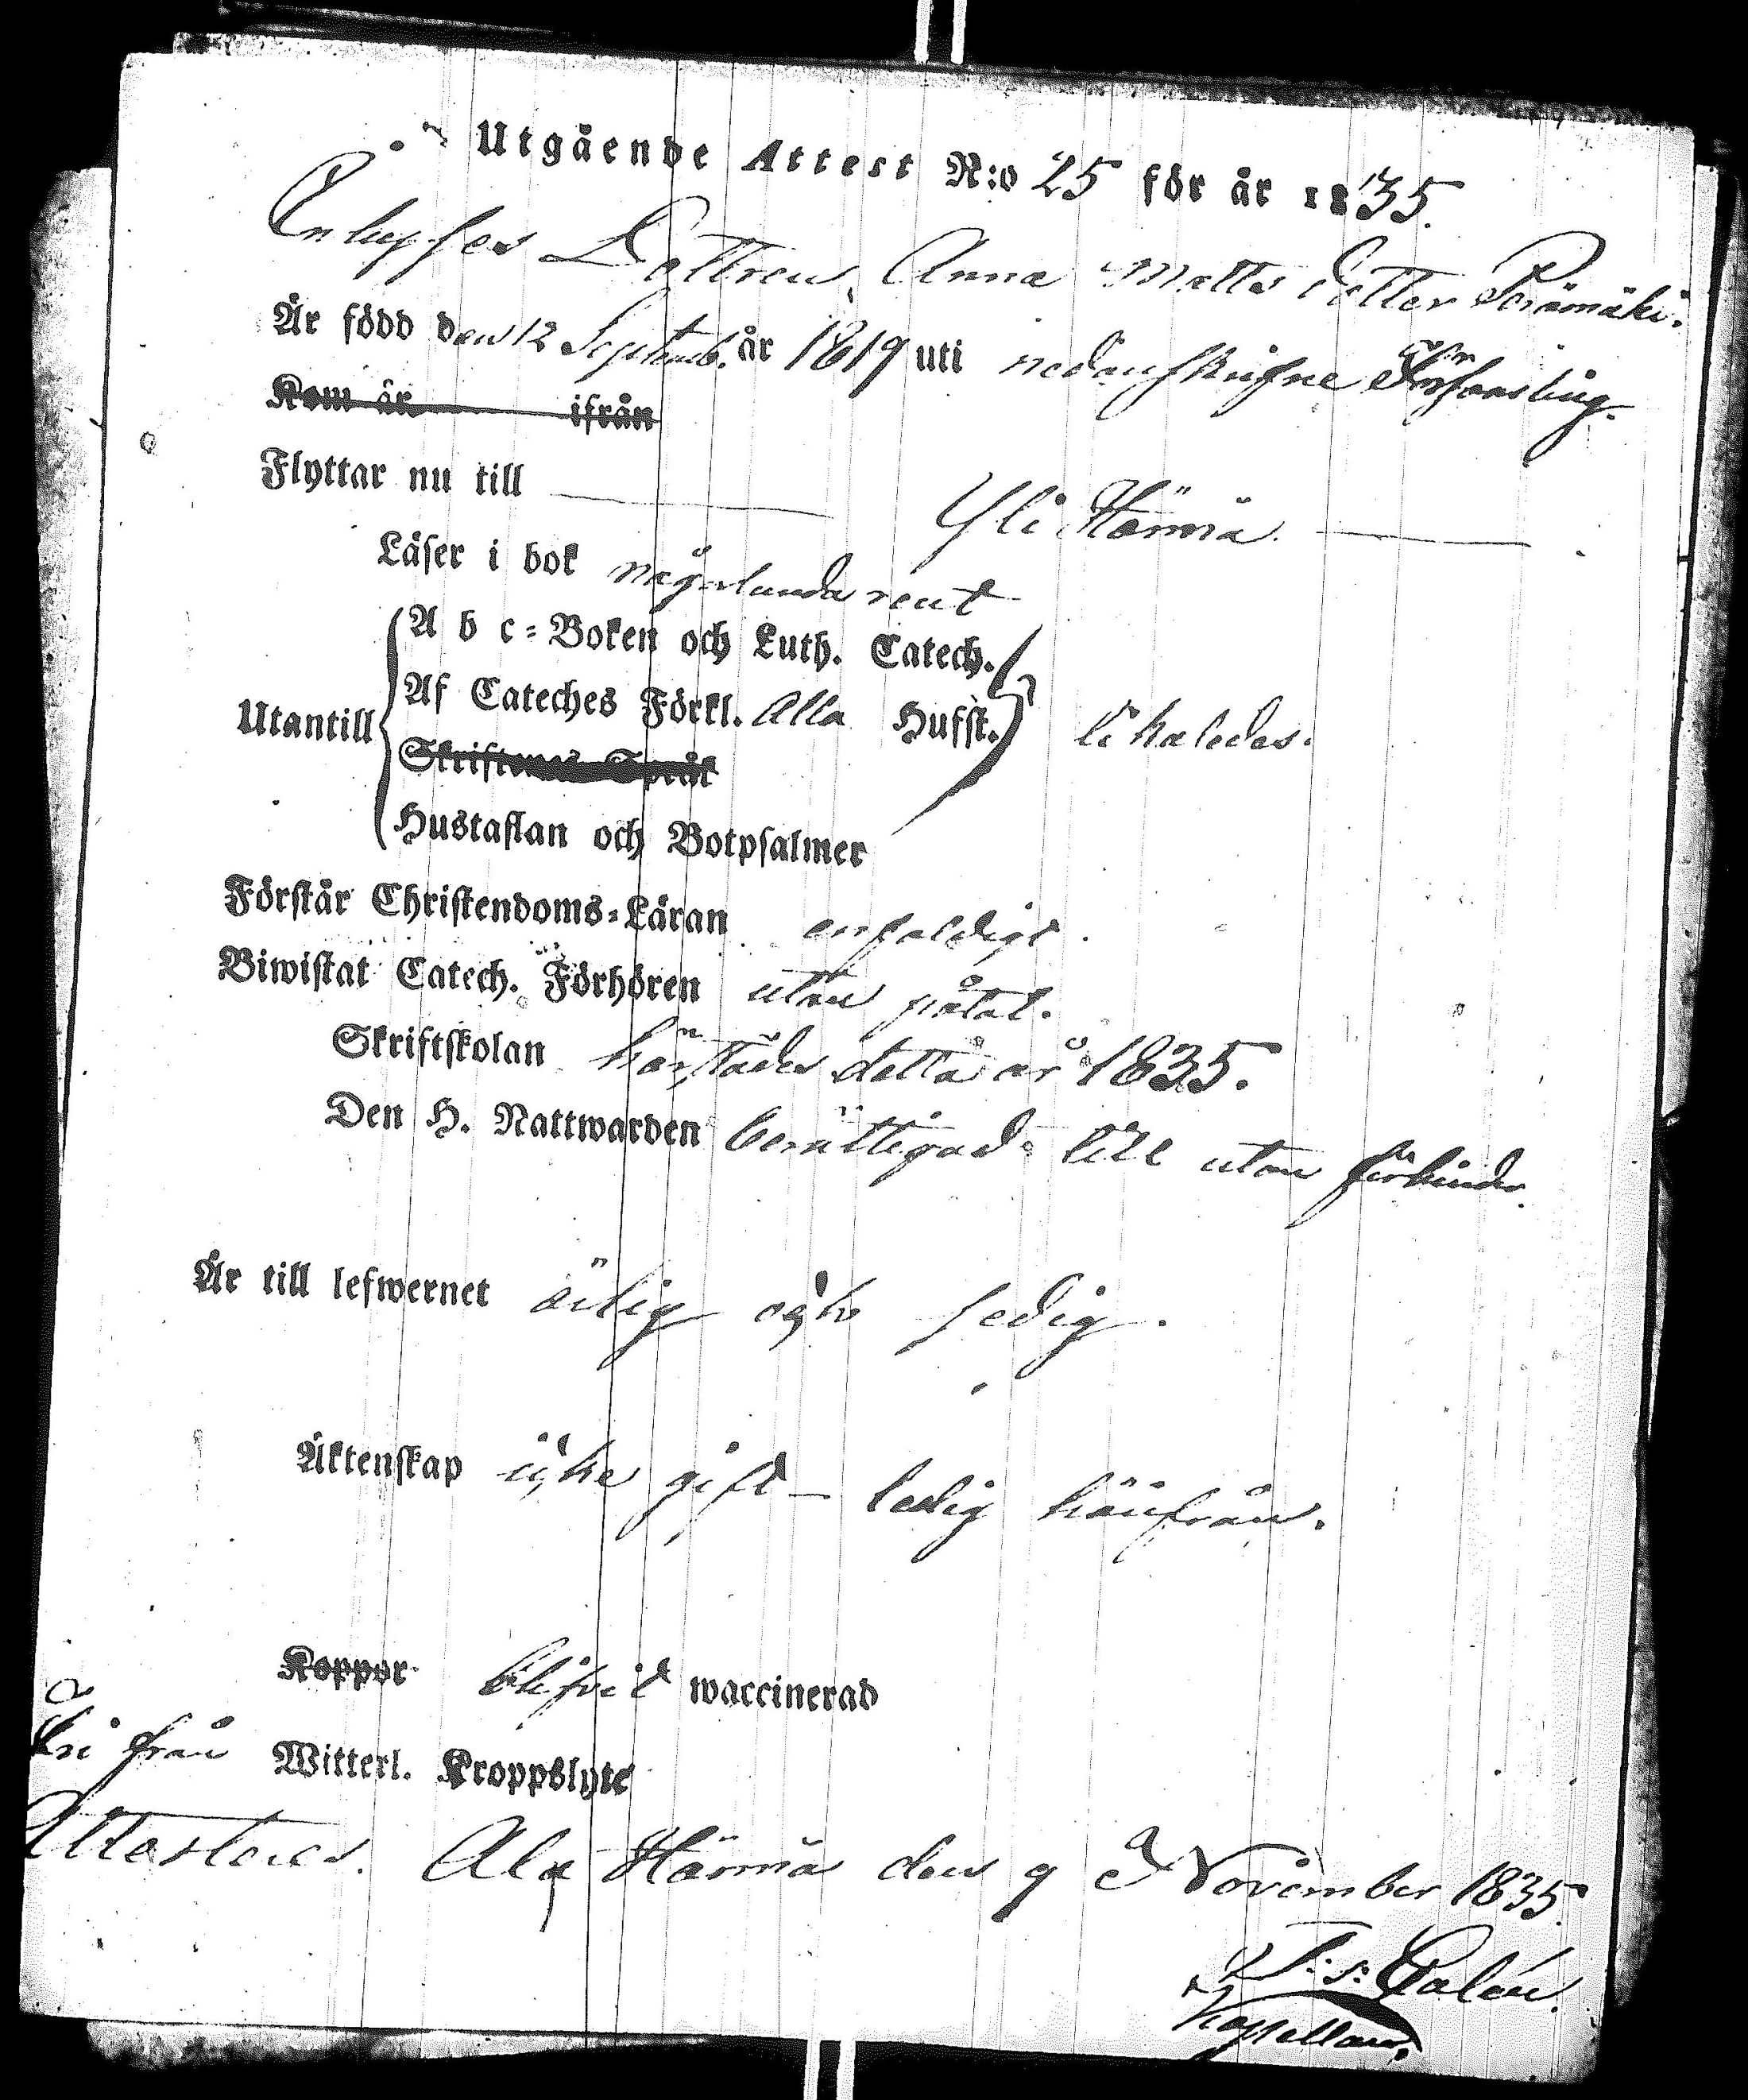 Utgående Attest N:o 25 för år 1835.
Enhysses Dottren, Anna Matts dotter Perämäki.
Är född den 12 Septemb. år 1819 uti nedanskrifne Församling.
Kom år ifrån
Flyttar nu till Yli Härmä.
Läser i bok någorlunda rent
A b c-Boken och Luth. Catech.
Af Cateches Förkl. Alla Hufst.
Utantill likaledes.
Skriftenes Språk
Hustaflan och Botpsalmer
Förstår Christendoms-Läran enfaldigt.
Biwistat Catech. Förhören utan påtal.
Skriftskolan härstädes detta år 1835.
Den H. Nattwarden berättigad till utan förhinder.
Är till lefwernet ärlig och sedig.
Äktenskap icke gift – ledig härifrån.
Koppor blifvit waccinerad
Fri från Witterl. Kroppslyte
Attesteras. Ala Härmä den 9 November 1835.
Kapellan.